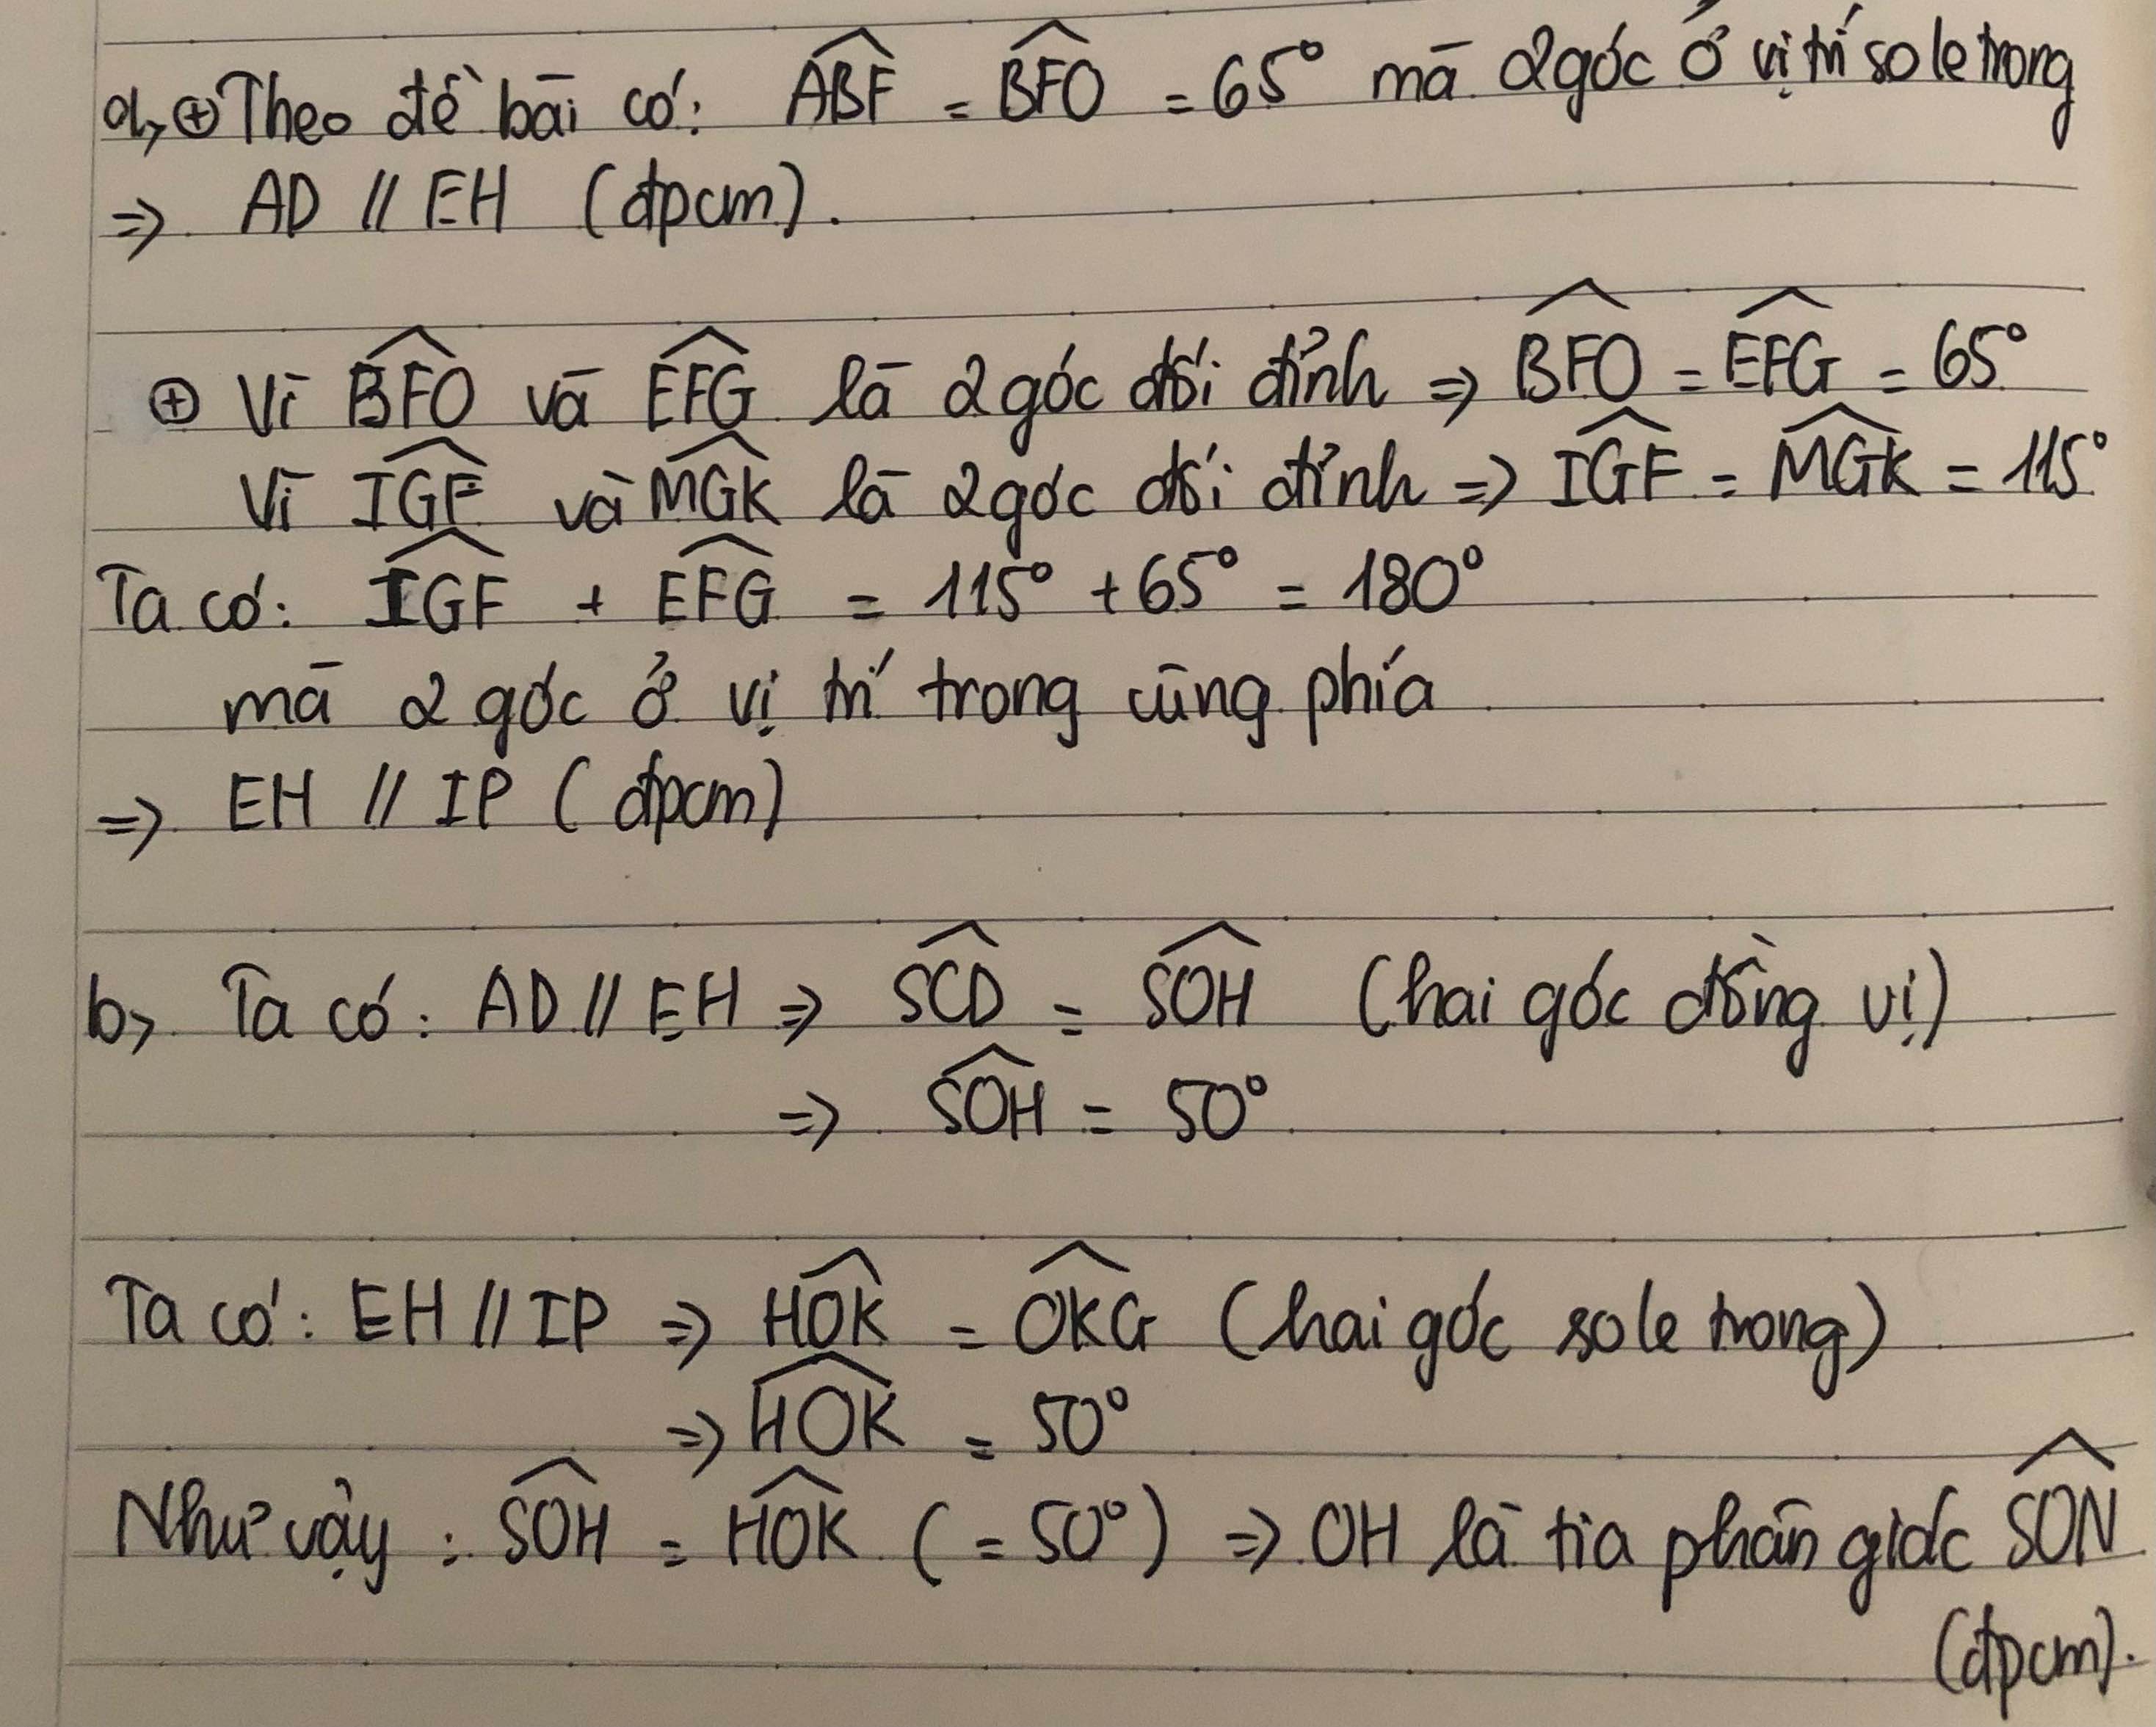 a, ⊕ Theo đề bài có: $\widehat{ABF}$ = $\widehat{BFO}$ = 65° mà 2 góc ở vị trí so le trong
=> AD // EH (đpcm).
⊕ Vì $\widehat{BFO}$ và $\widehat{EFG}$ là 2 góc đối đỉnh => $\widehat{BFO}$ = $\widehat{EFG}$ = 65°
Vì $\widehat{IGF}$ và $\widehat{MGK}$ là 2 góc đối đỉnh => $\widehat{IGF}$ = $\widehat{MGK}$ = 115°
Ta có: $\widehat{IGF}$ + $\widehat{EFG}$ = 115° + 65° = 180°
mà 2 góc ở vị trí trong cùng phía
=> EH // IP (đpcm)
b, Ta có: AD // EH => $\widehat{SCD}$ = $\widehat{SOH}$ (hai góc đồng vị)
=> $\widehat{SOH}$ = 50°
Ta có: EH // IP => $\widehat{HOK}$ = $\widehat{OKG}$ (hai góc so le trong)
=> $\widehat{HOK}$ = 50°
Như vậy: $\widehat{SOH}$ = $\widehat{HOK}$ (= 50°) => OH là tia phân giác $\widehat{SON}$
(đpcm).